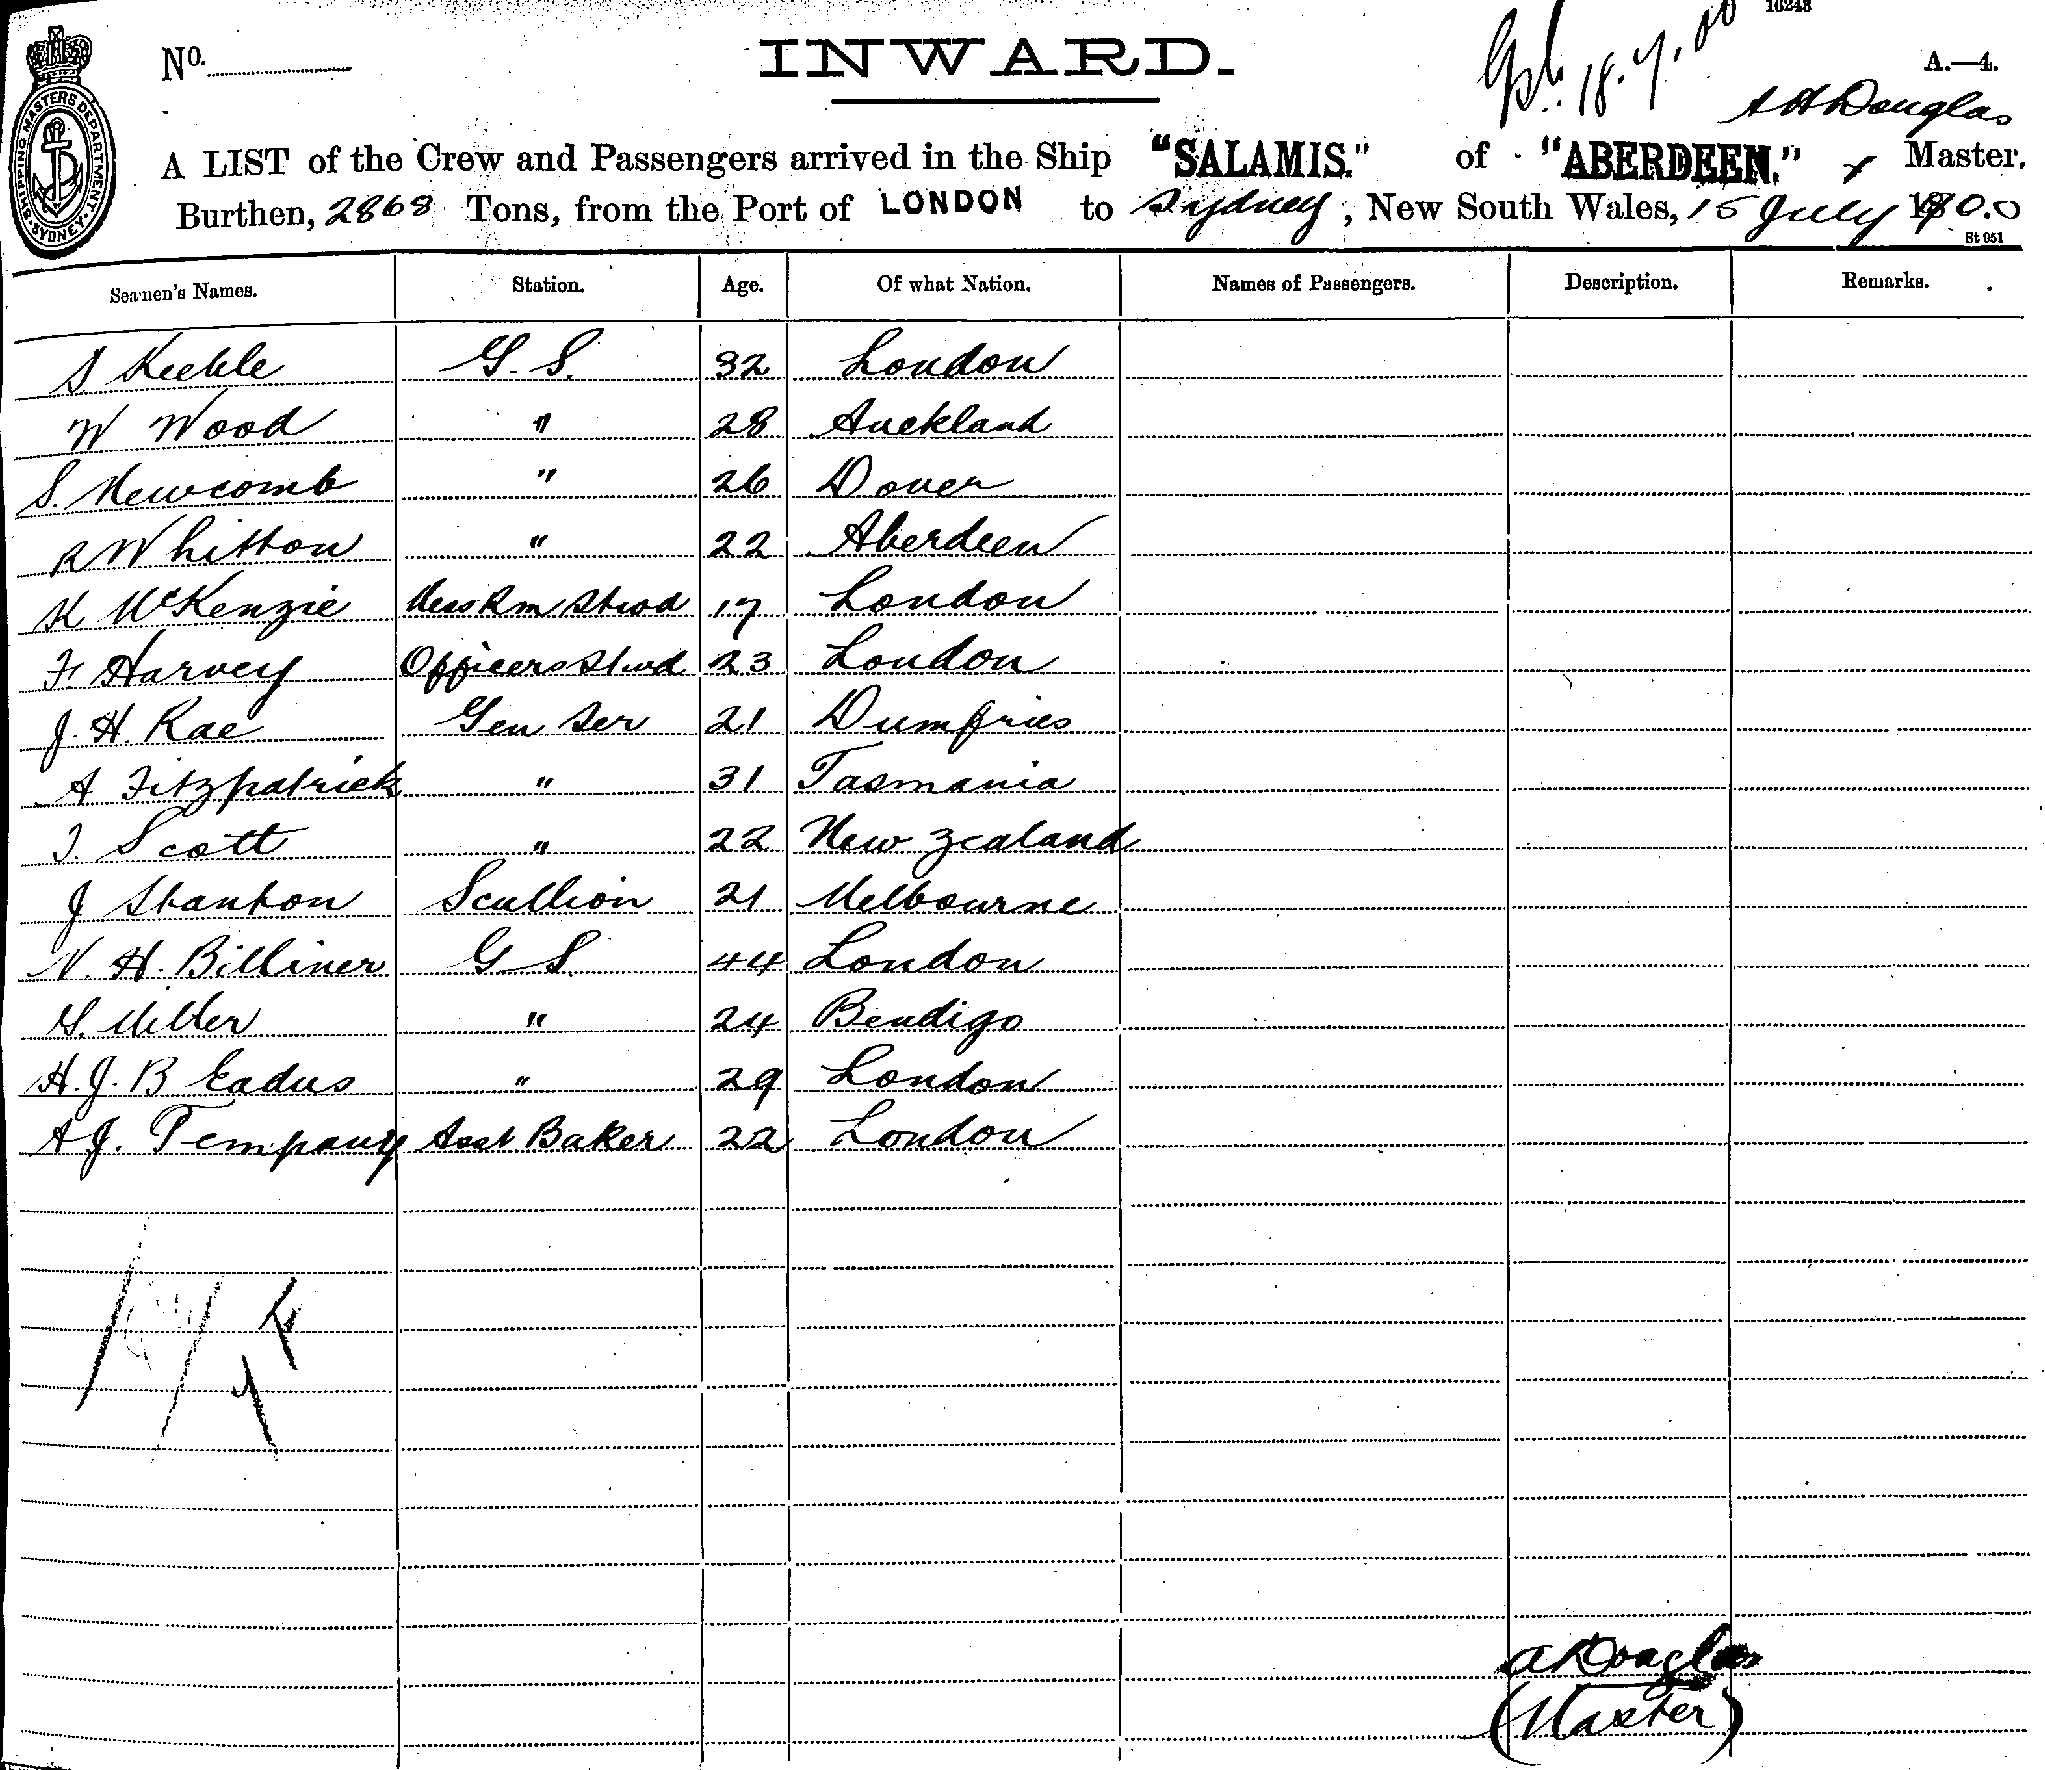 10248
No.
INWARD.
Gph. 18.7.00
A.—4.
SHIPPING MASTERS DEPARTMENT SYDNEY
A H Douglas
A LIST of the Crew and Passengers arrived in the Ship "SALAMIS." of "ABERDEEN." x Master,
Burthen, 2868 Tons, from the Port of LONDON to Sydney, New South Wales, 15 July 1900
St 051
Seamen's Names. Station. Age. Of what Nation. Names of Passengers. Description. Remarks.
S Keeble G. S. 32 London
W Wood " 28 Auckland
S. Newcomb " 26 Dover
R Whitton " 22 Aberdeen
K McKenzie Mess Rm Stwd 17 London
F. Harvey Officers Stwd 23 London
J. H. Rae Gen Ser 21 Dumfries
A Fitzpatrick " 31 Tasmania
T. Scott " 22 New Zealand
J Stanton Scullion 21 Melbourne
N. H. Billiner G S. 44 London
G. Miller " 24 Bendigo
H. J. B Eadus " 29 London
A J. Tempany Asst Baker 22 London
A Douglas
(Master)